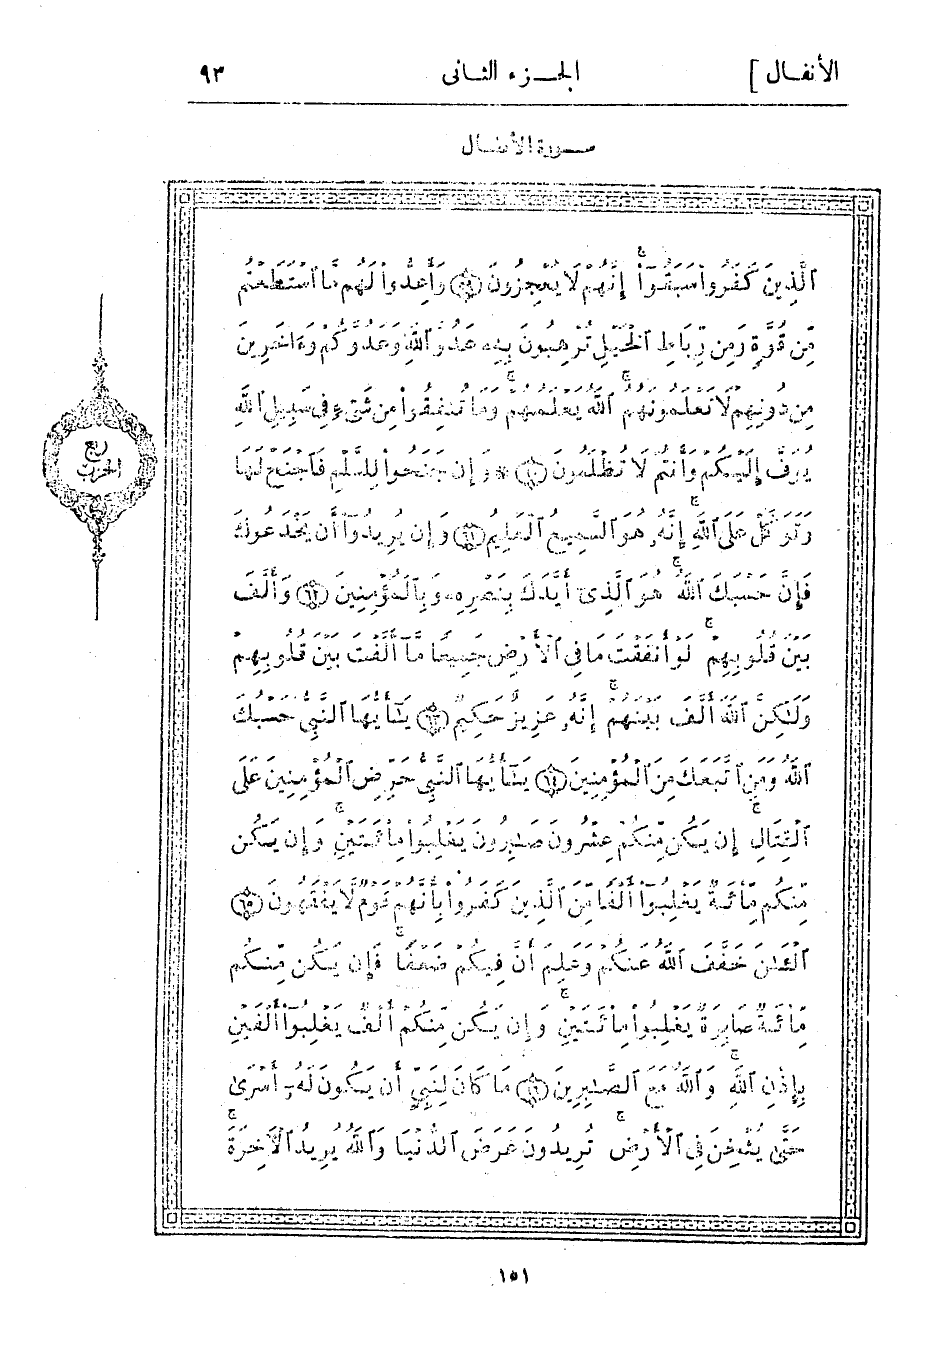 الأنفـال ]
الجـزء الثـانى
٩٣
سـورة الأنفـال
ٱلَّذِينَ كَفَرُوا۟ سَبَقُوٓا۟ ۚ إِنَّهُمْ لَا يُعْجِزُونَ ﴿٥٩﴾ وَأَعِدُّوا۟ لَهُم مَّا ٱسْتَطَعْتُم
مِّن قُوَّةٍ وَمِن رِّبَاطِ ٱلْخَيْلِ تُرْهِبُونَ بِهِۦ عَدُوَّ ٱللَّهِ وَعَدُوَّكُمْ وَءَاخَرِينَ
مِن دُونِهِمْ لَا تَعْلَمُونَهُمُ ۚ ٱللَّهُ يَعْلَمُهُمْ ۚ وَمَا تُنفِقُوا۟ مِن شَىْءٍ فِى سَبِيلِ ٱللَّهِ
يُوَفَّ إِلَيْكُمْ وَأَنتُمْ لَا تُظْلَمُونَ ﴿٦٠﴾ * وَإِن جَنَحُوا۟ لِلسَّلْمِ فَٱجْنَحْ لَهَا
وَتَوَكَّلْ عَلَى ٱللَّهِ ۚ إِنَّهُۥ هُوَ ٱلسَّمِيعُ ٱلْعَلِيمُ ﴿٦١﴾ وَإِن يُرِيدُوٓا۟ أَن يَخْدَعُوكَ
فَإِنَّ حَسْبَكَ ٱللَّهُ ۚ هُوَ ٱلَّذِىٓ أَيَّدَكَ بِنَصْرِهِۦ وَبِٱلْمُؤْمِنِينَ ﴿٦٢﴾ وَأَلَّفَ
بَيْنَ قُلُوبِهِمْ ۚ لَوْ أَنفَقْتَ مَا فِى ٱلْأَرْضِ جَمِيعًا مَّآ أَلَّفْتَ بَيْنَ قُلُوبِهِمْ
وَلَٰكِنَّ ٱللَّهَ أَلَّفَ بَيْنَهُمْ ۚ إِنَّهُۥ عَزِيزٌ حَكِيمٌ ﴿٦٣﴾ يَٰٓأَيُّهَا ٱلنَّبِىُّ حَسْبُكَ
ٱللَّهُ وَمَنِ ٱتَّبَعَكَ مِنَ ٱلْمُؤْمِنِينَ ﴿٦٤﴾ يَٰٓأَيُّهَا ٱلنَّبِىُّ حَرِّضِ ٱلْمُؤْمِنِينَ عَلَى
ٱلْقِتَالِ ۚ إِن يَكُن مِّنكُمْ عِشْرُونَ صَٰبِرُونَ يَغْلِبُوا۟ مِا۟ئَتَيْنِ ۚ وَإِن يَكُن
مِّنكُم مِّا۟ئَةٌ يَغْلِبُوٓا۟ أَلْفًا مِّنَ ٱلَّذِينَ كَفَرُوا۟ بِأَنَّهُمْ قَوْمٌ لَّا يَفْقَهُونَ ﴿٦٥﴾
ٱلْـَٰٔنَ خَفَّفَ ٱللَّهُ عَنكُمْ وَعَلِمَ أَنَّ فِيكُمْ ضَعْفًا ۚ فَإِن يَكُن مِّنكُم
مِّا۟ئَةٌ صَابِرَةٌ يَغْلِبُوا۟ مِا۟ئَتَيْنِ ۚ وَإِن يَكُن مِّنكُمْ أَلْفٌ يَغْلِبُوٓا۟ أَلْفَيْنِ
بِإِذْنِ ٱللَّهِ ۚ وَٱللَّهُ مَعَ ٱلصَّٰبِرِينَ ﴿٦٦﴾ مَا كَانَ لِنَبِىٍّ أَن يَكُونَ لَهُۥٓ أَسْرَىٰ
حَتَّىٰ يُثْخِنَ فِى ٱلْأَرْضِ ۚ تُرِيدُونَ عَرَضَ ٱلدُّنْيَا وَٱللَّهُ يُرِيدُ ٱلْآخِرَةَ ۚ
ربع
الحزب
١٥١